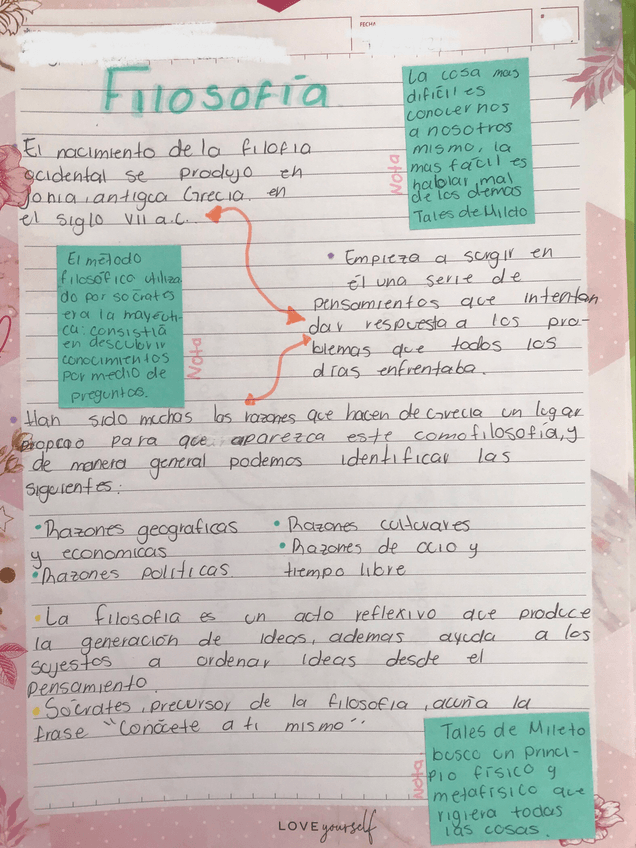 FECHA
Filosofía
La cosa mas
dificil es
conocernos
a nosotros
mismo, la
mas facil es
hablar mal
de los demas
Tales de Mileto
Nota
El nacimiento de la filofia
ocidental se produjo en
Jonia, antigua Grecia, en
el siglo VII a.c.
El metodo
filosófico utiliza
do por socrates
era la mayeuti-
ca: consistia
en descubrir
conocimientos
por medio de
preguntas.
Nota
• Empieza a surgir en
él una serie de
pensamientos que intentan
dar respuesta a los pro-
blemas que todos los
días enfrentaba.
• Han sido muchas las razones que hacen de Grecia un lugar
propicio para que aparezca este como filosofía, y
de manera general podemos identificar las
siguientes:
• Razones geograficas
y economicas
• Razones politicas
• Razones culturares
• Razones de ocio y
tiempo libre
• La filosofia es un acto reflexivo que produce
la generación de ideas, ademas ayuda a los
sujestos a ordenar ideas desde el
pensamiento.
• Sócrates, precursor de la filosofia, acuña la
frase "Conócete a ti mismo".
Tales de Mileto
busco un princi-
pio físico y
metafisico que
rigiera todas
las cosas.
Nota
LOVE yourself